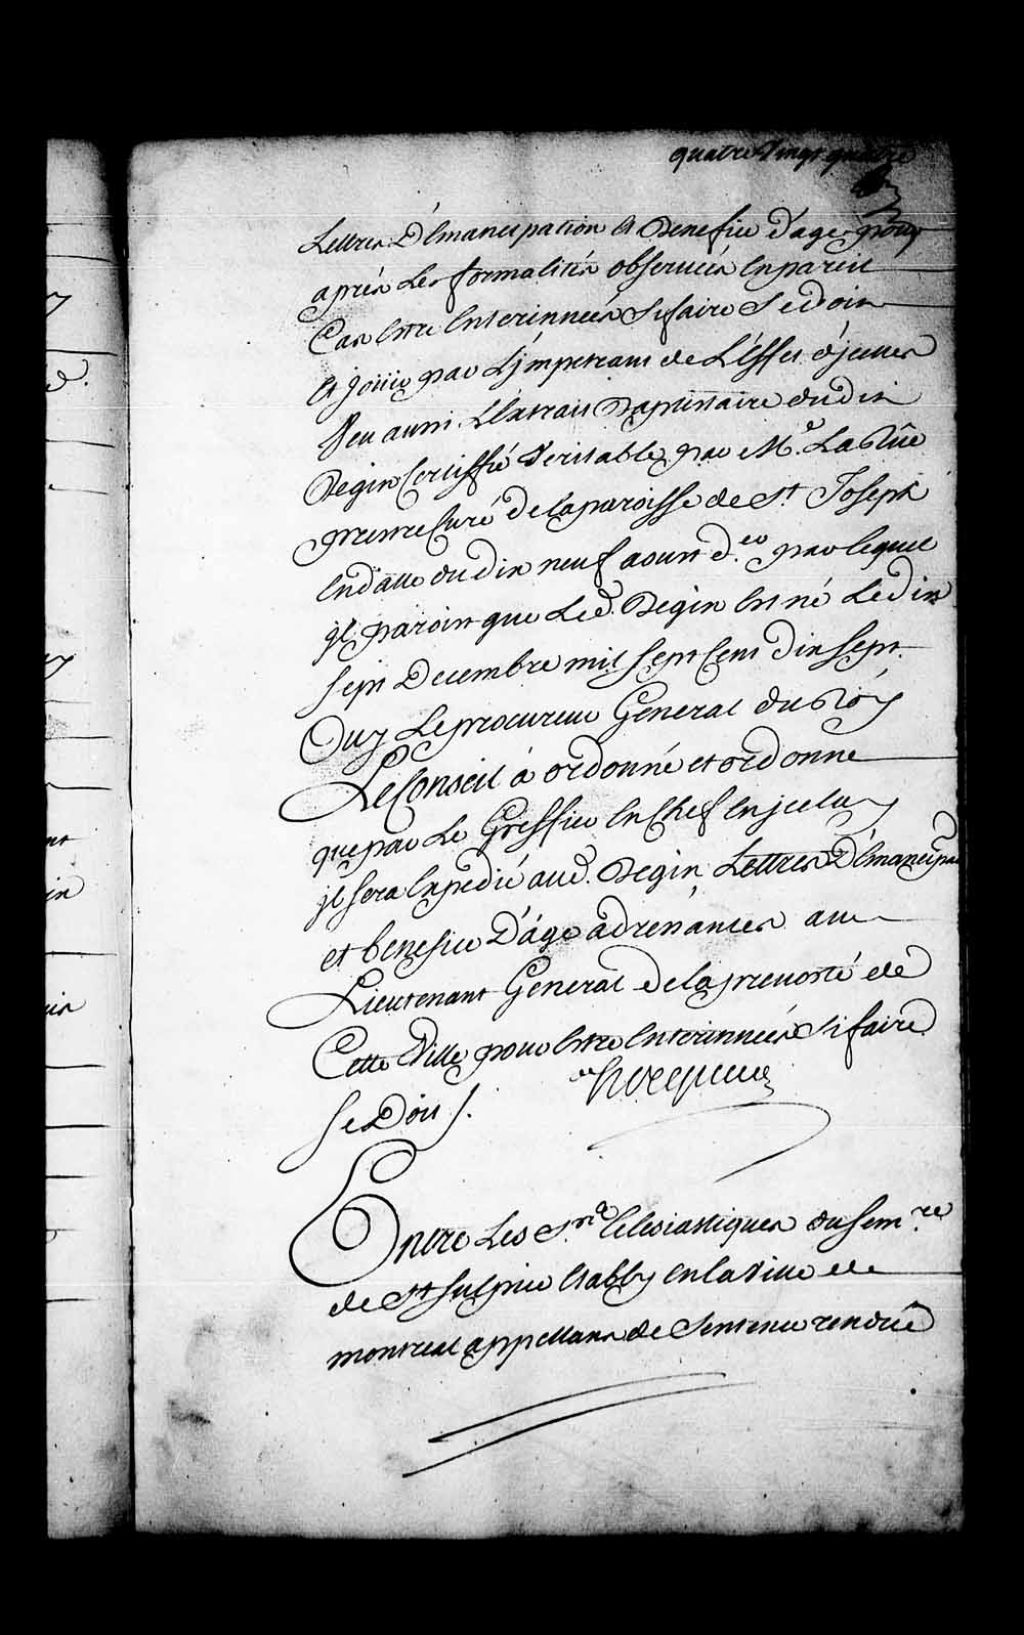 quatre Vingt quatre
Lettres D'Emancipation et Benefice d'age pour
apres Les formalités observées En pareil
Cas Estre Enterinnées Si faire Se doit
Et joüir par L'jmpetrant de L'Effet d'jcelles
Veu aussi L'Extrait Baptistaire dudit
Begin Certiffié Veritable par Mᵉ. La Rüe
prestre Curé de la paroisse de Sᵗ Joseph
En datte du dix neuf aoust dᵉʳ par lequel
jl paroit que Led. Begin Est né Le dix
sept Decembre mil sept Cent dix sept
Ouy Le procureur General du Roy
Le Conseil à ordonné et ordonne
que par Le Greffier En Chef En jceluy
jl sera Expedié aud. Begin Lettres D'Emancipaon
et benefice D'áge adressantes au
Lieutenant General de la prevosté de
Cette Ville pour Estre Enterinnées Si faire
Se Doit
Hocquart
Entre Les Sʳˢ Eclesiastiques du Semʳᵉ
de Sᵗ Sulpice Etably en la Ville de
montreal appellans de Sentence rendüe